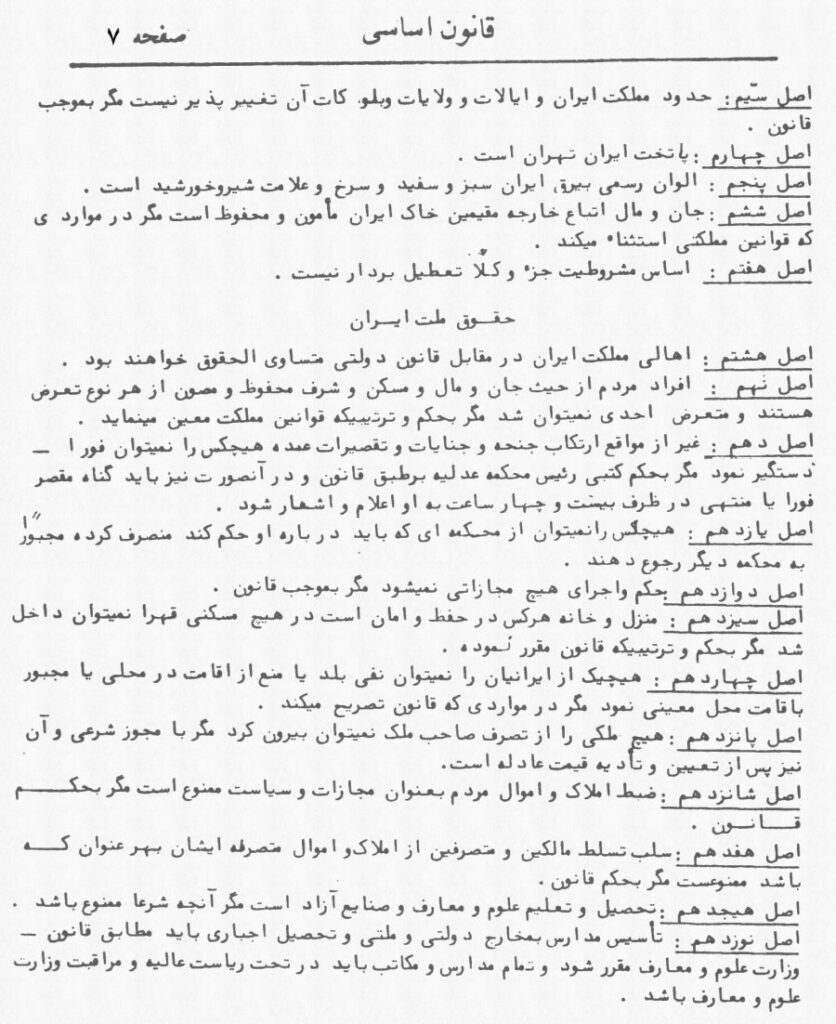 قانون اساسی صفحه ۷
اصل سّیم: حدود مملکت ایران و ایالات و ولایات وبلوکات آن تغییر پذیر نیست مگر بموجب
قانون .
اصل چهارم : پاتخت ایران تهران است .
اصل پنجم : الوان رسمی بیرق ایران سبز و سفید و سرخ و علامت شیروخورشید است .
اصل ششم : جان و مال اتباع خارجه مقیمین خاک ایران مأمون و محفوظ است مگر در مواردی
که قوانین مملکتی استثناء میکند .
اصل هفتم : اساس مشروطیت جزء و کلاً تعطیل بردار نیست .
حقـوق ملت ایـران
اصل هشتم : اهالی مملکت ایران در مقابل قانون دولتی متساوی الحقوق خواهند بود .
اصل نهم : افراد مردم از حیث جان و مال و مسکن و شرف محفوظ و مصون از هر نوع تعرض
هستند و متعرض احدی نمیتوان شد مگر بحکم و ترتیبیکه قوانین مملکت معین مینماید .
اصل دهم : غیر از مواقع ارتکاب جنحه و جنایات و تقصیرات عمده هیچکس را نمیتوان فورا ــ
دستگیر نمود مگر بحکم کتبی رئیس محکمه عدلیه برطبق قانون و در آنصورت نیز باید گناه مقصر
فورا یا منتهی در ظرف بیست و چهار ساعت به او اعلام و اشعار شود .
اصل یازدهم : هیچکس رانمیتوان از محکمه ای که باید در باره او حکم کند منصرف کرده مجبوراً
به محکمه دیگر رجوع دهند .
اصل دوازدهم : حکم واجرای هیچ مجازاتی نمیشود مگر بموجب قانون .
اصل سیزدهم : منزل و خانه هرکس در حفظ و امان است در هیچ مسکنی قهرا نمیتوان داخل
شد مگر بحکم و ترتیبیکه قانون مقرر نموده .
اصل چهاردهم : هیچیک از ایرانیان را نمیتوان نفی بلد یا منع از اقامت در محلی یا مجبور
باقامت محل معینی نمود مگر در مواردی که قانون تصریح میکند .
اصل پانزدهم : هیچ ملکی را از تصرف صاحب ملک نمیتوان بیرون کرد مگر با مجوز شرعی و آن
نیز پس از تعیین و تأدیه قیمت عادله است.
اصل شانزدهم : ضبط املاک و اموال مردم بعنوان مجازات و سیاست ممنوع است مگر بحکـــم
قــانــون .
اصل هفدهم : سلب تسلط مالکین و متصرفین از املاک و اموال متصرفه ایشان بهر عنوان کــه
باشد ممنوعست مگر بحکم قانون .
اصل هیجدهم : تحصیل و تعلیم علوم و معارف و صنایع آزاد است مگر آنچه شرعا ممنوع باشد .
اصل نوزدهم : تأسیس مدارس بمخارج دولتی و ملتی و تحصیل اجباری باید مطابق قانون ــ
وزارت علوم و معارف مقرر شود و تمام مدارس و مکاتب باید در تحت ریاست عالیه و مراقبت وزارت
علوم و معارف باشد .